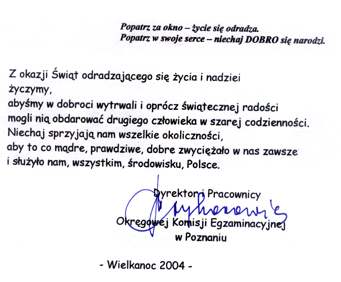 Popatrz za okno – życie się odradza.
Popatrz w swoje serce – niechaj DOBRO się narodzi.
Z okazji Świąt odradzającego się życia i nadziei
życzymy,
abyśmy w dobroci wytrwali i oprócz świątecznej radości
mogli nią obdarować drugiego człowieka w szarej codzienności.
Niechaj sprzyjają nam wszelkie okoliczności,
aby to co mądre, prawdziwe, dobre zwyciężało w nas zawsze
i służyło nam, wszystkim, środowisku, Polsce.
Dyrektor i Pracownicy
Okręgowej Komisji Egzaminacyjnej
w Poznaniu
- Wielkanoc 2004 -